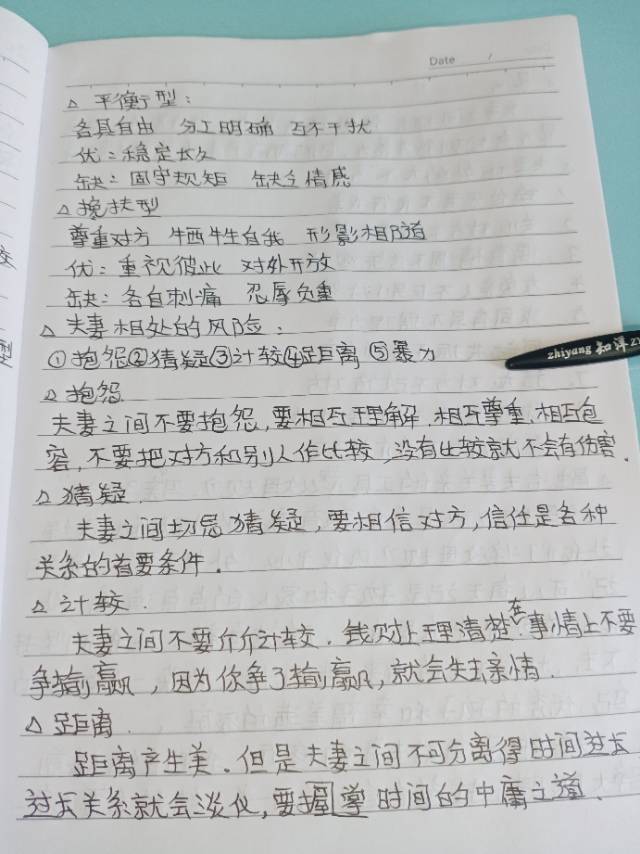 Date /
△ 平衡型：
各具自由 分工明确 互不干扰
优：稳定长久
缺：固守规矩 缺乏情感
△ 搀扶型
尊重对方 牺牲自我 形影相随
优：重视彼此 对外开放
缺：各自刺痛 忍辱负重
△ 夫妻相处的风险：
①抱怨②猜疑③计较④距离⑤暴力
△ 抱怨
夫妻之间不要抱怨，要相互理解，相互尊重，相互包
容，不要把对方和别人作比较，没有比较就不会有伤害．
△ 猜疑
夫妻之间切忌猜疑，要相信对方，信任是各种
关系的首要条件．
△ 计较．
夫妻之间不要斤斤计较．钱财上理清楚．在事情上不要
争输赢，因为你争了输赢，就会失去亲情．
△ 距离．
距离产生美．但是夫妻之间不可分离得时间过长
过长关系就会淡化，要掌时间的中庸之道．
zhiyang 知洋
型